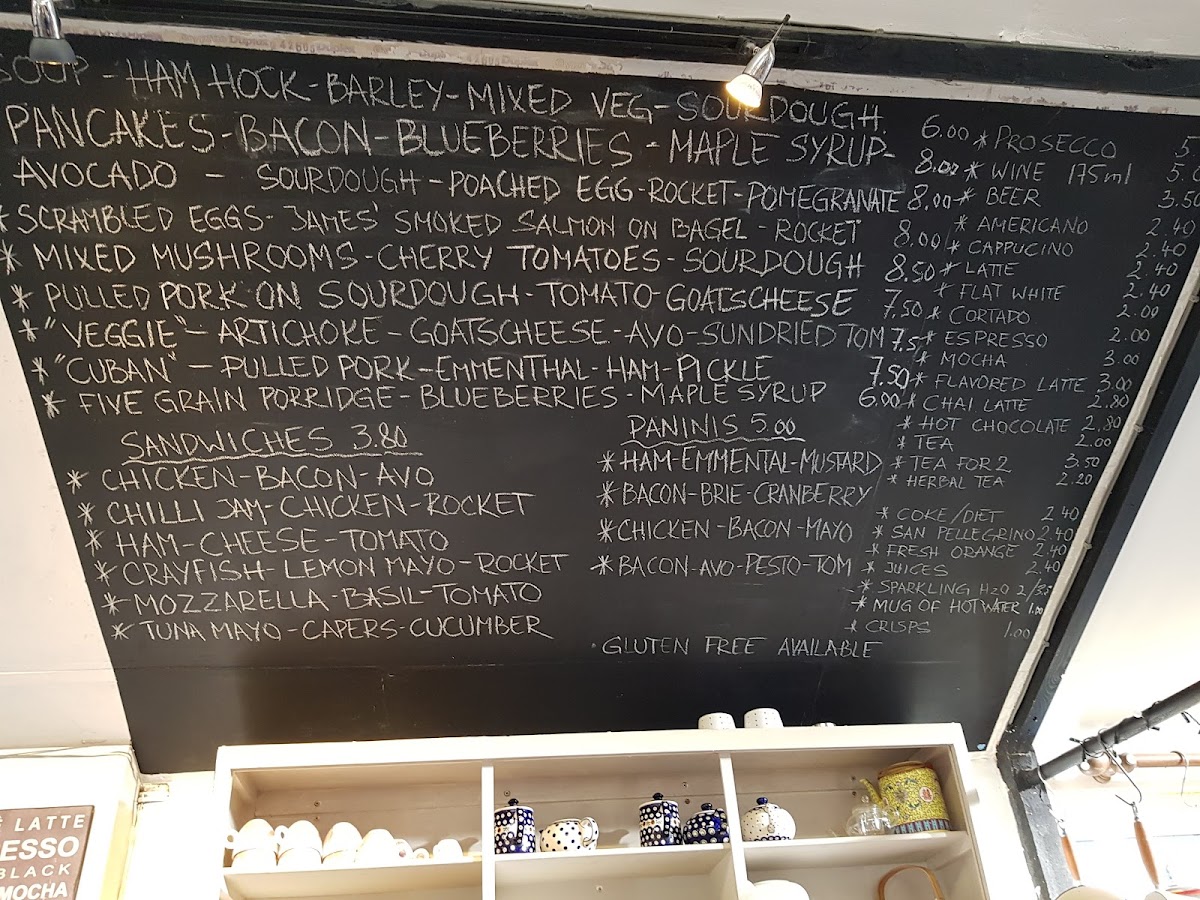 SOUP - HAM HOCK - BARLEY - MIXED VEG - SOURDOUGH. 6.00
PANCAKES - BACON - BLUEBERRIES - MAPLE SYRUP - 8.00
AVOCADO - SOURDOUGH - POACHED EGG - ROCKET - POMEGRANATE 8.00
* SCRAMBLED EGGS - JAMES' SMOKED SALMON ON BAGEL - ROCKET 8.00
* MIXED MUSHROOMS - CHERRY TOMATOES - SOURDOUGH 8.50
* PULLED PORK ON SOURDOUGH - TOMATO - GOATSCHEESE 7.50
* "VEGGIE" - ARTICHOKE - GOATSCHEESE - AVO - SUNDRIED TOM 7.5
* "CUBAN" - PULLED PORK - EMMENTHAL - HAM - PICKLE 7.50
* FIVE GRAIN PORRIDGE - BLUEBERRIES - MAPLE SYRUP 6.00
SANDWICHES 3.80
* CHICKEN - BACON - AVO
* CHILLI JAM - CHICKEN - ROCKET
* HAM - CHEESE - TOMATO
* CRAYFISH - LEMON MAYO - ROCKET
* MOZZARELLA - BASIL - TOMATO
* TUNA MAYO - CAPERS - CUCUMBER
PANINIS 5.00
* HAM - EMMENTAL - MUSTARD
* BACON - BRIE - CRANBERRY
* CHICKEN - BACON - MAYO
* BACON - AVO - PESTO - TOM
. GLUTEN FREE AVAILABLE
* PROSECCO 5
* WINE 175ml 5.0
* BEER 3.50
* AMERICANO 2.40
* CAPPUCINO 2.40
* LATTE 2.40
* FLAT WHITE 2.40
* CORTADO 2.00
* ESPRESSO 2.00
* MOCHA 3.00
* FLAVORED LATTE 3.00
* CHAI LATTE 2.80
* HOT CHOCOLATE 2.80
* TEA 2.00
* TEA FOR 2 3.50
* HERBAL TEA 2.20
* COKE/DIET 2.40
* SAN PELLEGRINO 2.40
* FRESH ORANGE 2.40
* JUICES 2.40
* SPARKLING H2O 2/3.5
* MUG OF HOT WATER 1.00
* CRISPS 1.00
LATTE
ESSO
BLACK
MOCHA